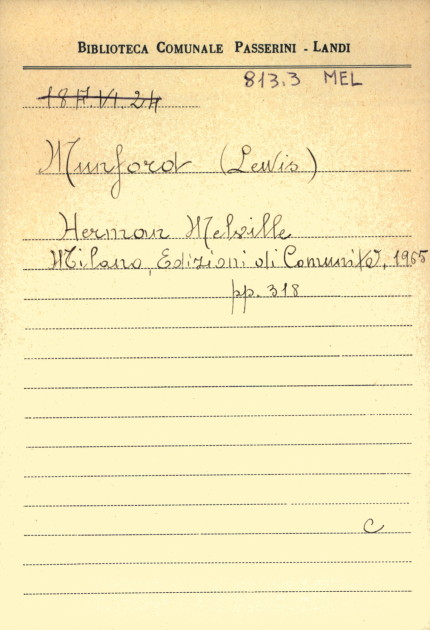 BIBLIOTECA COMUNALE PASSERINI - LANDI
813.3 MEL
187.VI.24
Munford (Lewis)
Herman Melville
Milano, Edizioni di Comunità, 1965
pp. 318
C